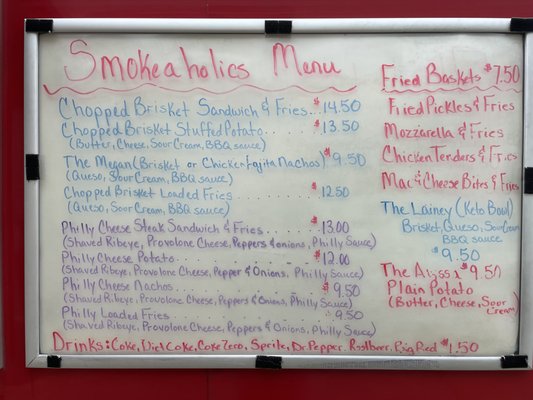 Smokeaholics Menu
Chopped Brisket Sandwich & Fries... $14.50
Chopped Brisket Stuffed Potato.... $13.50
(Butter, Cheese, Sour Cream, BBQ sauce)
The Megan (Brisket or Chicken Fajita Nachos) $9.50
(Queso, Sour Cream, BBQ sauce)
Chopped Brisket Loaded Fries........ $12.50
(Queso, Sour Cream, BBQ sauce)
Philly Cheese Steak Sandwich & Fries........ $13.00
(Shaved Ribeye, Provolone Cheese, Peppers & onions, Philly Sauce)
Philly Cheese Potato............ $12.00
(Shaved Ribeye, Provolone Cheese, Pepper & Onions, Philly Sauce)
Philly Cheese Nachos............ $9.50
(Shaved Ribeye, Provolone Cheese, Peppers & Onions, Philly Sauce)
Philly Loaded Fries............ $9.50
(Shaved Ribeye, Provolone Cheese, Peppers & Onions, Philly Sauce)
Fried Baskets $7.50
Fried Pickles & Fries
Mozzarella & Fries
Chicken Tenders & Fries
Mac & Cheese Bites & Fries
The Lainey (Keto Bowl)
Brisket, Queso, Sour Cream
BBQ sauce
$9.50
The $9.50
Plain Potato
(Butter, Cheese, Sour
Cream)
Drinks: Coke, Diet Coke, Coke Zero, Sprite, Dr. Pepper, Rootbeer, Big Red $1.50